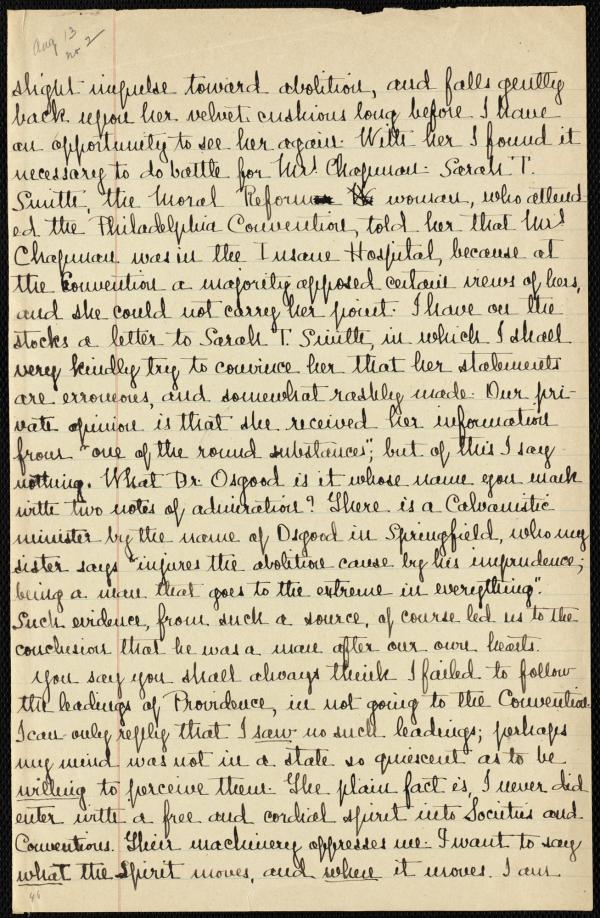 Aug 13
no 2
slight impulse toward abolition, and falls gently
back upon her velvet cushions long before I have
an opportunity to see her again. With her I found it
necessary to do battle for Mrs Chapman. Sarah T.
Smith, the Moral Reform woman, who attend-
ed the Philadelphia Convention, told her that Mrs
Chapman was in the Insane Hospital, because at
the Convention a majority opposed certain views of hers,
and she could not carry her point. I have on the
stocks a letter to Sarah T. Smith, in which I shall
very kindly try to convince her that her statements
are erroneous, and somewhat rashly made. Our pri-
vate opinion is that she received her information
from "one of the round substances"; but of this I say
nothing. What Dr. Osgood is it whose name you mark
with two notes of admiration? There is a Calvanistic
minister by the name of Osgood in Springfield, who my
sister says "injures the abolition cause by his imprudence;
being a man that goes to the extreme in everything".
Such evidence, from such a source, of course led us to the
conclusion that he was a man after our own hearts.
You say you shall always think I failed to follow
the leadings of Providence, in not going to the Convention.
I can only reply that I saw no such leadings; perhaps
my mind was not in a state so quiescent as to be
willing to perceive them. The plain fact is, I never did
enter with a free and cordial spirit into Societies and
Conventions. Their machinery oppresses me. I want to say
what the Spirit moves, and when it moves. I am
46